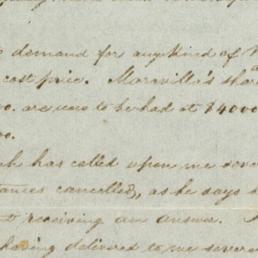 demand for any kind of
cost price. Maravilla's shar
are now to be had at $4000
00.
ch has called upon me seve
ances cancelled, as he says
t receiving an answer.
having delivered to me severa